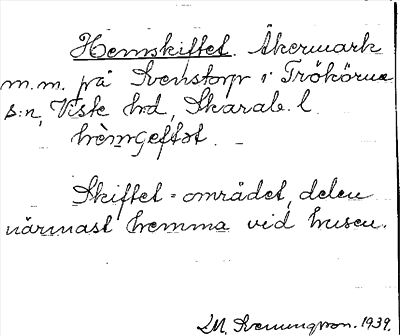 Hemskiftet. Åkermark
m.m. på Svenstorp i Trökörna
s:n, Viste hrd, Skarab. l.
Skiftet = området, delen
närmast hemma vid husen.
M. Svenungsson. 1939.